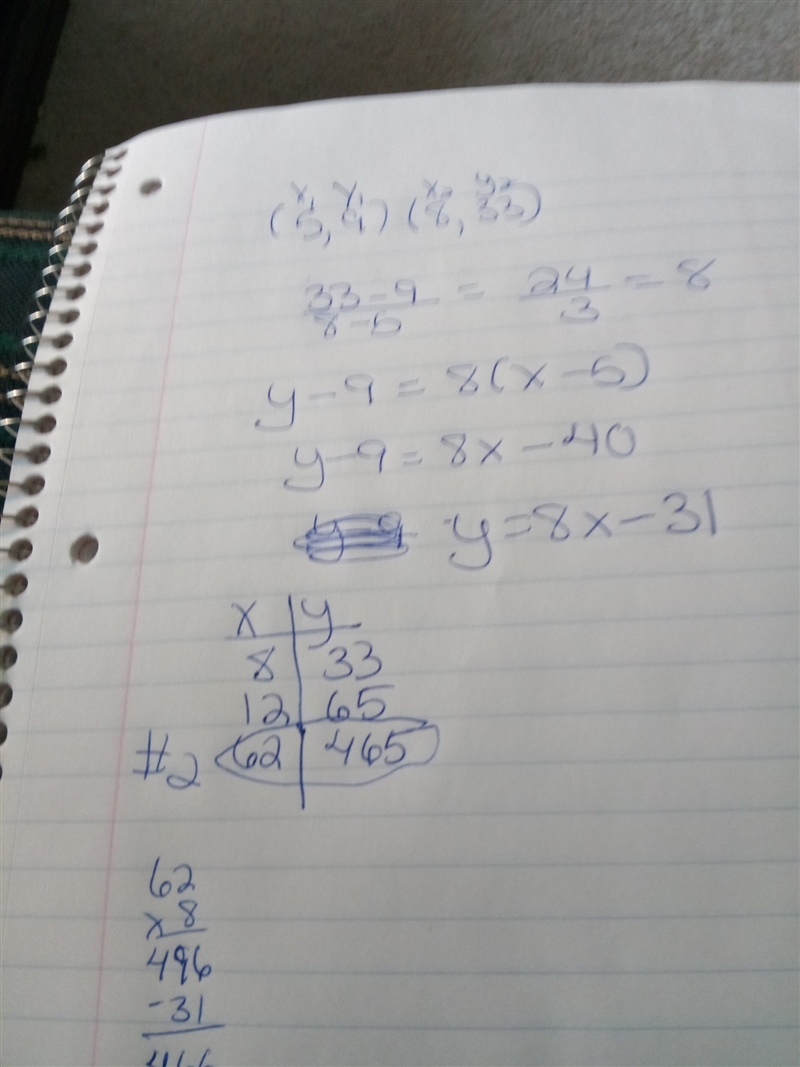 x₁ y₁ x₂ y₂
(5, 9) (8, 33)
33-9/8-5 = 24/3 = 8
y-9 = 8(x-5)
y-9 = 8x-40
y=8x-31
x | y
8 | 33
12 | 65
#2 62 | 465
62
x 8
496
-31